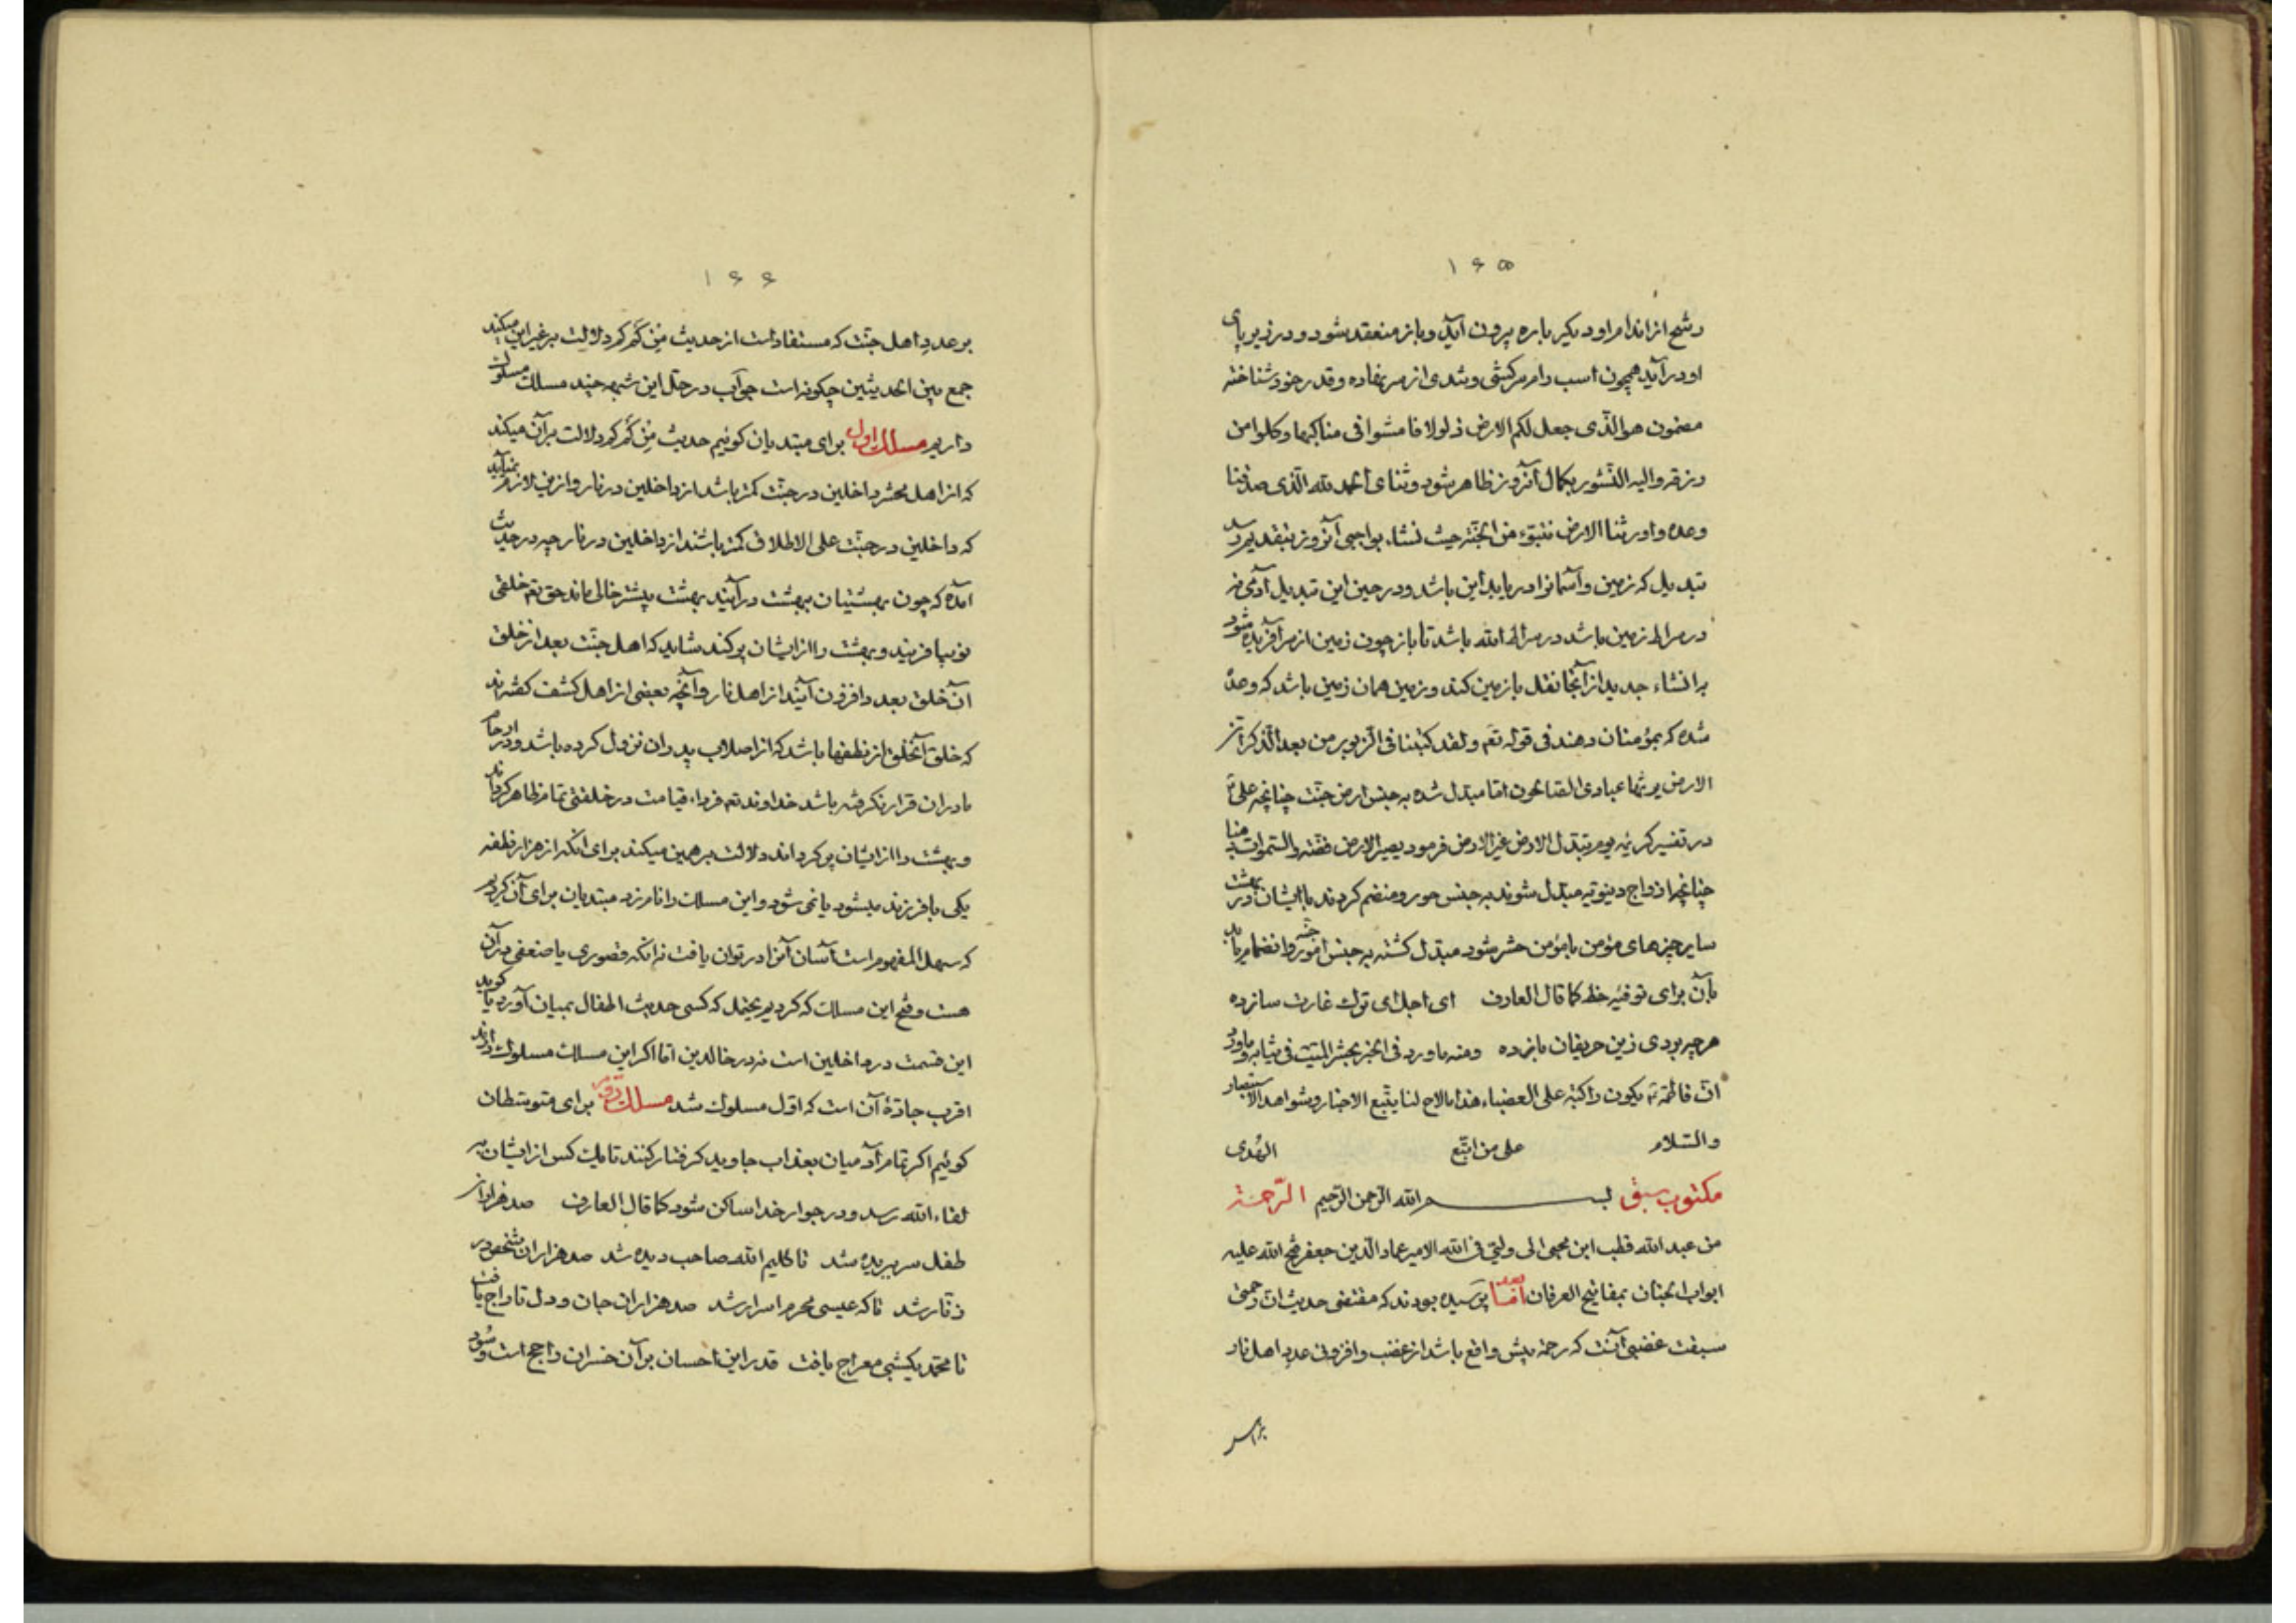 ۱۶۵
رشح از اندام او دیگر باره بیرون آید و باز منعقد شود و در زیر پای
او در آید همچون اسب رام سرکشی و تندی از سر نهاده و قدر خود شناخته
مضمون هو الّذی جعل لکم الارض ذلولا فامشوا فی مناکبها و کلوا من
رزقه و الیه النّشور بکمال آنروز ظاهر شود و ثنای الحمد لله الّذی صدقنا
وعده و اورثنا الارض نتبوّء من الجنّة حیث نشاء بواجبی آنروز بتقدیم رسد
تبدیل که زمین و آسمانرا دریابد این باشد و در حین این تبدیل آدمی نه
در صراط زمین باشد در صراط الله باشد تا باز چون زمین از سر آفریده شود
بر انشاء جدید از آنجا نقل بازمین کند و زمین همان زمین باشد که وعدهٔ
شده که بمؤمنان دهند فی قوله تع و لقد کتبنا فی الزبور من بعد الذّکر انّ
الارض یرثها عبادی الصّالحون امّا مبدّل شده به جنس ارض جنّت چنانچه علی ع
در تفسیر کریمه یوم تبدّل الارض غیر الارض فرمود یصیر الارض فضّة و السّموات ذهبا
چنانچه ازواج دنیویّه مبدّل شوند به جنس حور و منضم گردند با ایشان در بهشت
سایر چیزهای مؤمن با مؤمن حشر شود مبدّل گشته به جنس امور و انضمام یابد
بآن برای توفیهٔ حظ کما قال العارف ای اجل ای ترک غارت ساز ده
هرچه بردی زین حریفان باز ده و منه ما ورد فی الخبر یحشر المیّت فی ثیابه و ما ورد
انّ فاطمة ع یکون راکبة علی العضباء هذا ما لاح لنا بتتبّع الاخبار و شواهد الاستبصار
و السّلام علی من اتّبع الهُدی
مکتوب سبق بسم الله الرّحمن الرّحیم الرّحمة
من عبد الله قطب ابن محیی الی ولیّی فی الله الامیر عماد الدّین جعفر فتح الله علیه
ابواب الجنان بمفاتیح العرفان امّا بعد پرسیده بودند که مقتضی حدیث انّ رحمتی
سبقت غضبی آنست که رحمة پیش واقع باشد از غضب و افزونی عدد اهل نار
۱۶۶
بر عدد اهل جنّت که مستفاد است از حدیث مِن کَم کم دلالت بر غیر این میکند
جمع بین الحدیثین چگونه است جواب در حلّ این شبهه چند مسلک مسلوک
داریم مسلک اول برای مبتدیان گوئیم حدیث مِن کَم کم دلالت بر آن میکند
که از اهل محشر داخلین در جنّت کمتر باشد از داخلین در نار و ازین لازم نمیآید
که داخلین در جنّت علی الاطلاق کمتر باشند از داخلین در نار چه در حدیث
آمده که چون بهشتیان ببهشت در آیند بهشت بیشتر خالی ماند حق تع خلقی
نو بیافریند و بهشت را از ایشان پر کند شاید که اهل جنّت بعد از خلق
آن خلق بعدد افزون آیند از اهل نار و آنچه بعضی از اهل کشف گفته‌اند
که خلق آنخلق از نطفها باشد که از اصلاب پدران نزول کرده باشد و در ارحام
مادران قرار نگرفته باشد خداوند تع فرداء قیامت در خلقتی تمام ظاهر گرداند
و بهشت را از ایشان پر گرداند دلالت بر همین میکند برای آنکه از هزار نطفه
یکی یا فرزند میشود یا نمی شود و این مسلک را نامزد مبتدیان برای آن کردیم
که سهل المفهوم است آسان آنرا در توان یافت نه آنکه قصوری یا ضعفی در آن
هست و فتح این مسلک که کردیم یحتمل که کسی حدیث اطفال بمیان آورد یا گوید
این قسمت در داخلین است نه در خالدین امّا اگر این مسلک مسلوک دارند
اقرب جادّهٔ آن است که اوّل مسلوک شد مسلک دویم برای متوسّطان
گوئیم اگر تمام آدمیان بعذاب جاوید گرفتار کنند تا یک کس از ایشان به
لقاء الله رسد و در جوار خدا ساکن شود کما قال العارف صد هزاران
طفل سر بریده شد تا کلیم الله صاحب دیده شد صد هزاران شخص در
زنّار شد تا که عیسی محرم اسرار شد صد هزاران جان و دل تاراج یافت
تا محمّد یکشبی معراج یافت قدر این احسان بر آن خسران راجح است و سُود